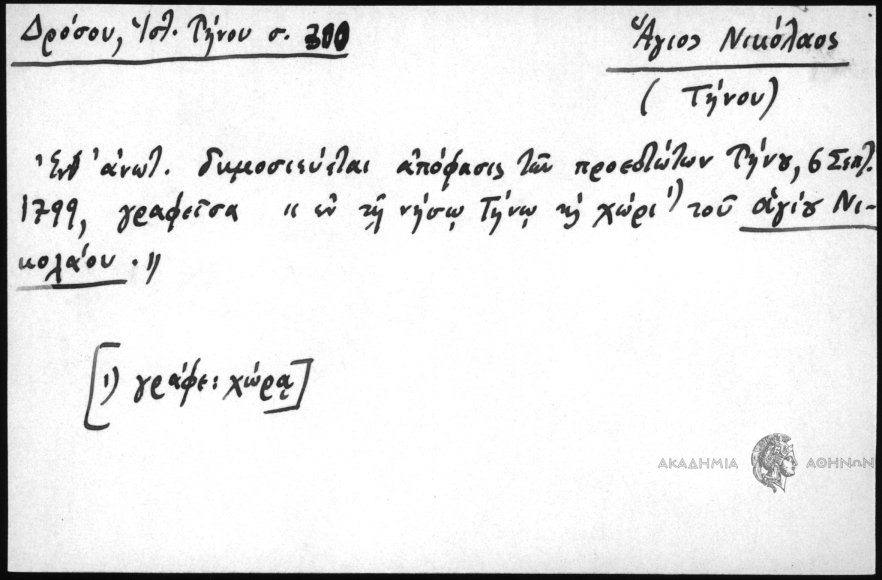 Δρόσου, Ἱστ. Τήνου σ. 300
Ἅγιος Νικόλαος
(Τήνου)
Ἐνθ' ἀνωτ. δημοσιεύεται ἀπόφασις τῶν προεστώτων Τήνου, 6 Σεπτ.
1799, γραφεῖσα « ἐν τῇ νήσῳ Τήνῳ τῇ χώρι ¹) τοῦ ἁγίου Νι-
κολάου . »
[1) γράφε: χώρᾳ]
ΑΚΑΔΗΜΙΑ ΑΘΗΝΩΝ